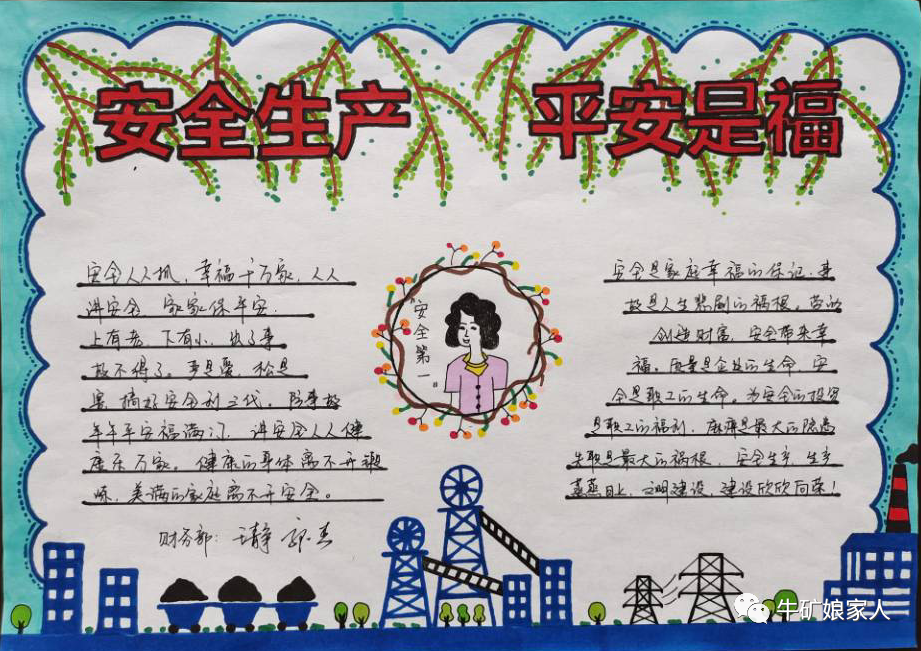 安全生产 平安是福
安全人人抓，幸福千万家，人人
讲安全，家家保平安．
上有老，下有小，出了事
故不得了。严是爱，松是
害，搞好安全利三代。防事故
年年平安福满门，讲安全人人健
康乐万家。健康的身体离不开锻
炼，美满的家庭离不开安全。
财务部：王静
安全第一。
安全是家庭幸福的保证，事
故是人生悲剧的祸根。劳动
创造财富，安全带来幸
福。质量是企业的生命，安
全是职工的生命。为安全的投资
是职工的福利，麻痹是最大的隐患
失职是最大的祸根，安全生产，生产
蒸蒸日上，文明建设，建设欣欣向荣！
牛矿娘家人